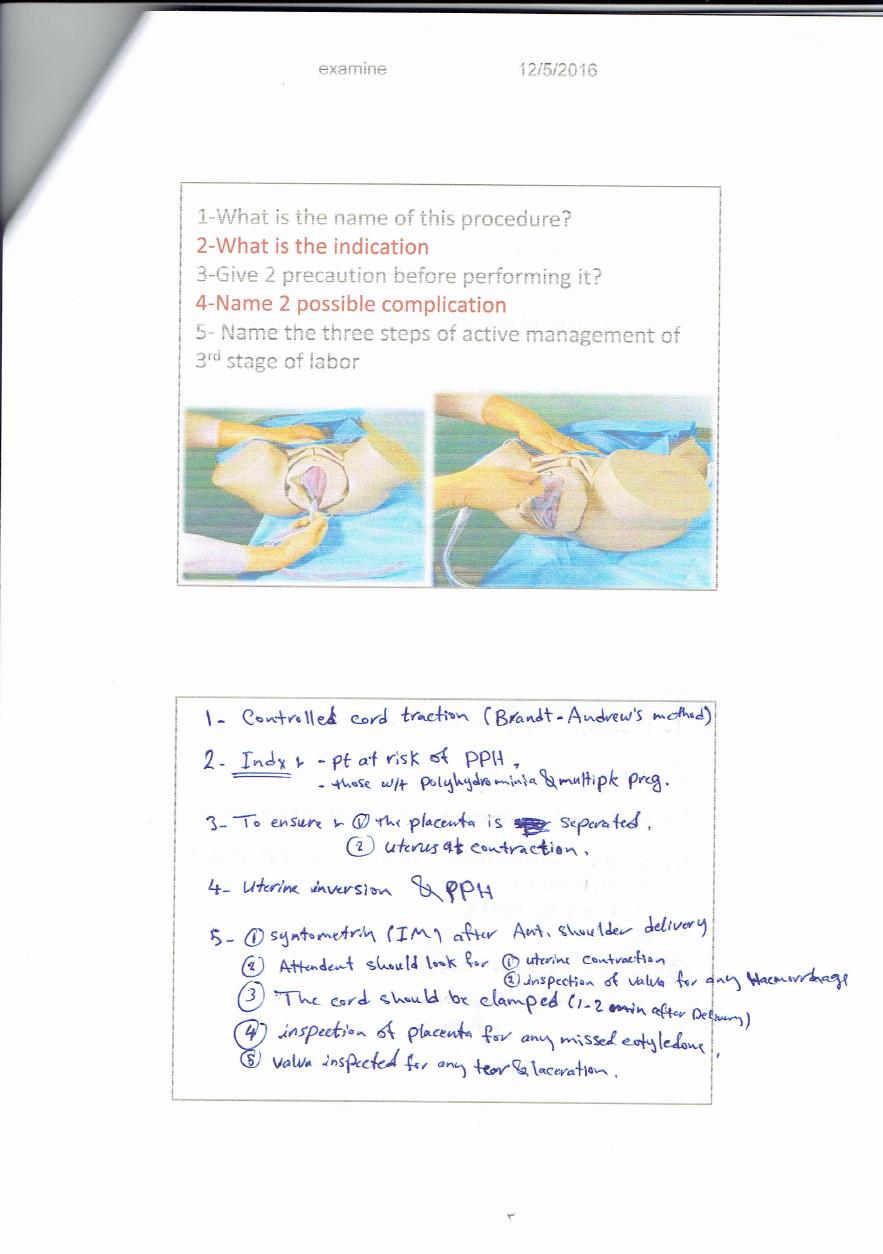 examine 12/5/2016
1-What is the name of this procedure?
2-What is the indication
3-Give 2 precaution before performing it?
4-Name 2 possible complication
5- Name the three steps of active management of
3rd stage of labor
1- Controlled cord traction (Brandt-Andrew's method)
2- Indx - pt at risk of PPH,
- those w/t polyhydrominia & multiple preg.
3- To ensure ① the placenta is seperated.
② uterus at contraction.
4- Uterine inversion & PPH
5- ① syntometrin (IM) after Ant. shoulder delivery
② Attendent should look for ① uterine contraction
② inspection of valva for any Haemorrhage
③ The cord should be clamped (1-2 min after Delivery)
④ inspection of placenta for any missed cotyledone,
⑤ valva inspected for any tear & laceration.
٣